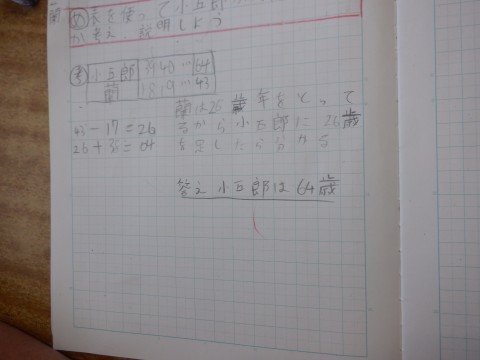 蘭
め 表を使って小五郎
か考え、説明しよう
考 小五郎 39 40 … 64
蘭 18 19 … 43
蘭は26歳年をとって
43-17=26 るから小五郎に26歳
26+38=64 を足したら分かる
答え 小五郎は64歳